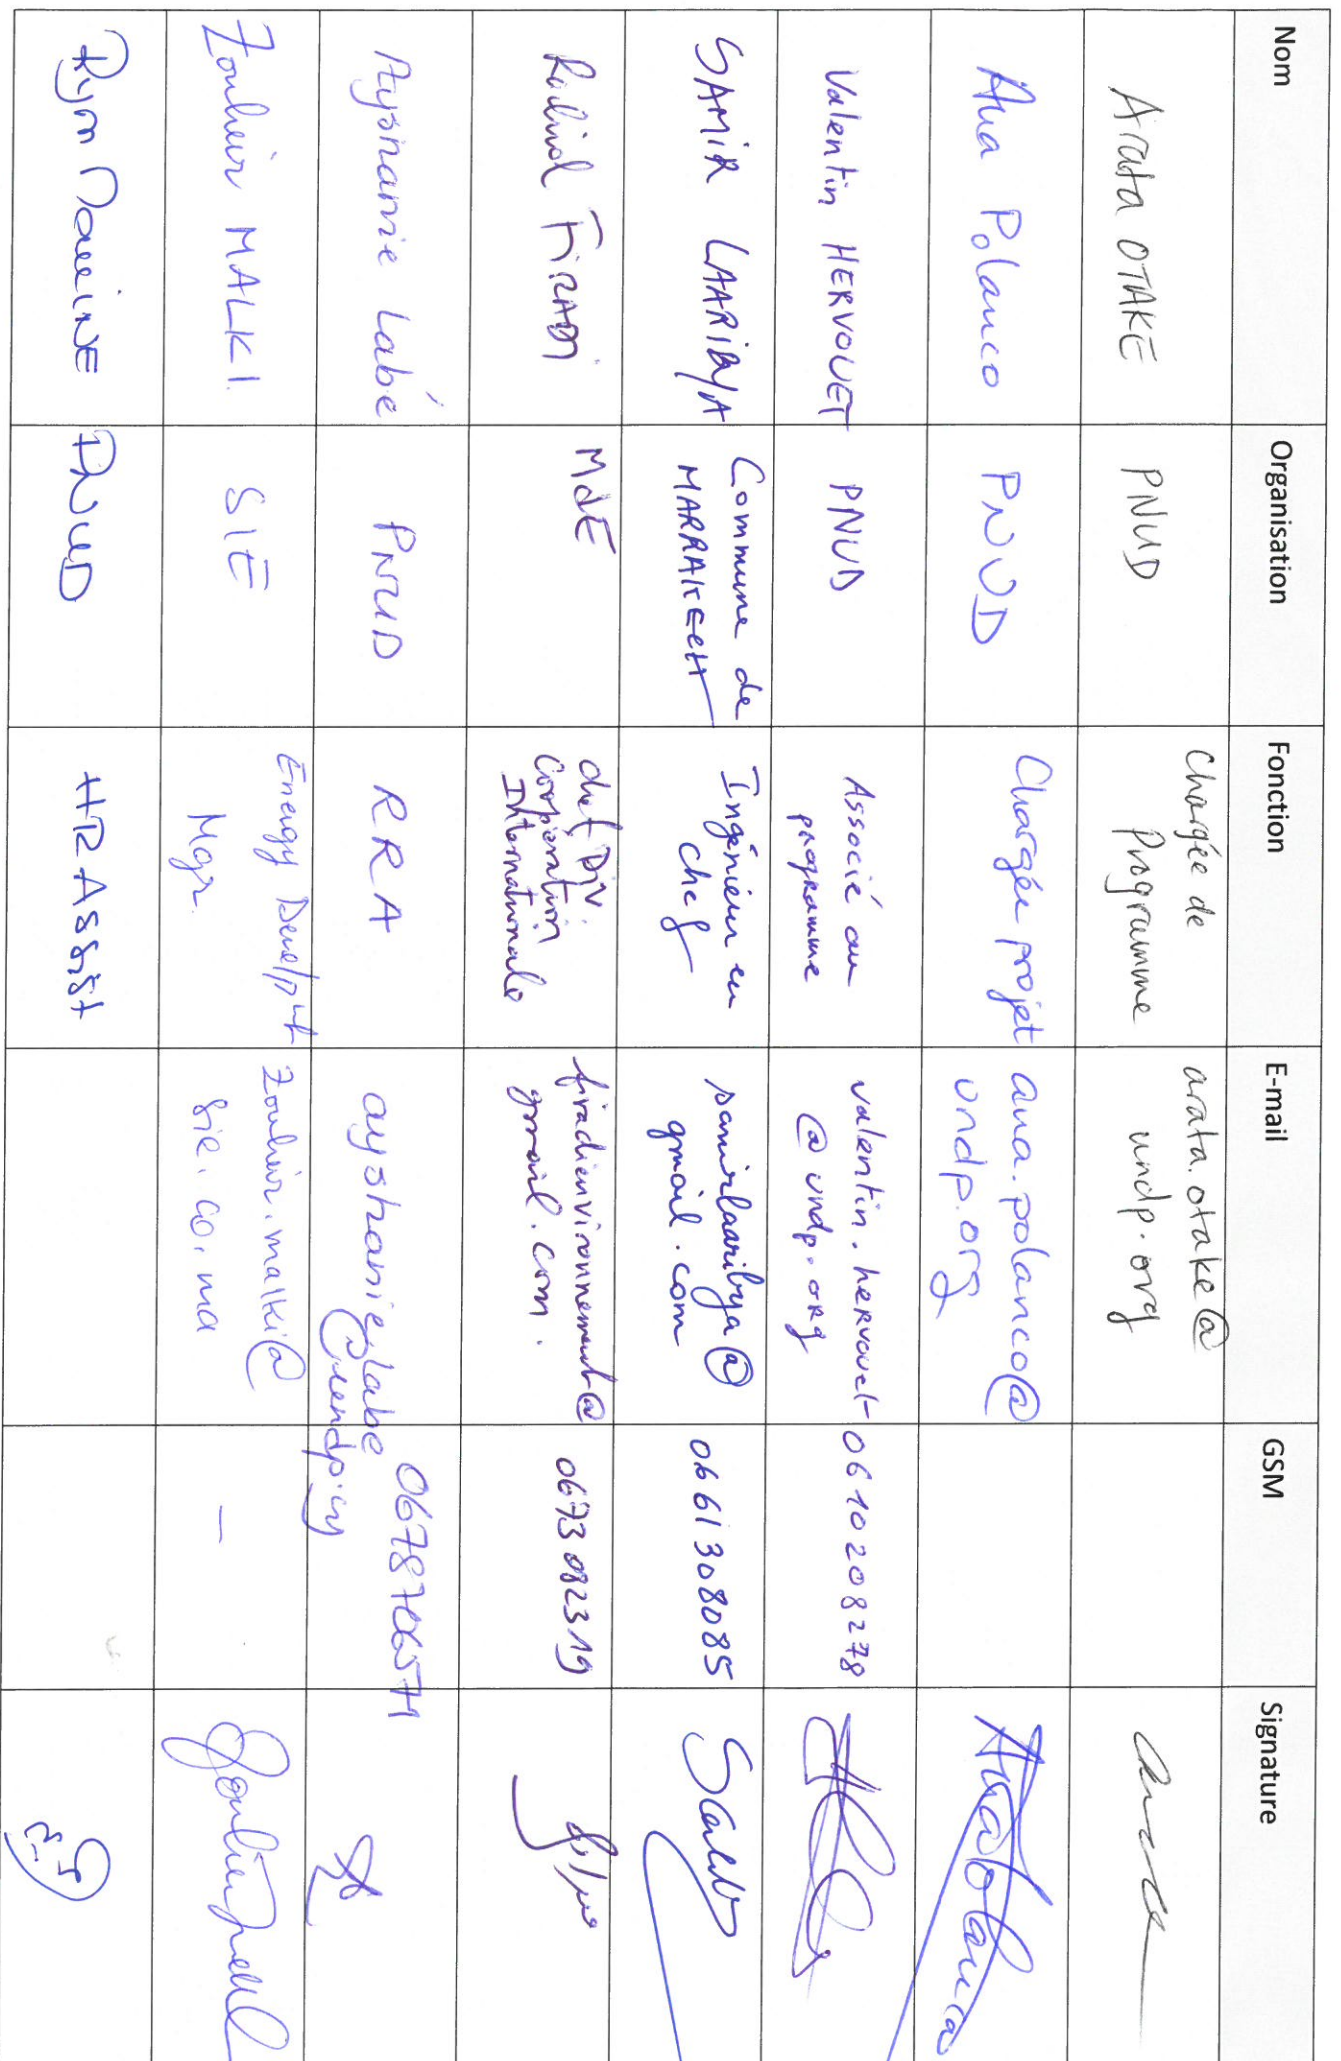 Nom Organisation Fonction E-mail GSM Signature
Arata OTAKE PNUD Chargée de Programme arata.otake@ undp.org
Ana Polanco PNUD Chargée projet ana.polanco@ undp.org
Valentin HERVOUET PNUD Associé au programme valentin.hervouet @undp.org 0610208278
SAMIR LAARIBYA Commune de MARRAKECH Ingénieur en chef samirlaaribya@ gmail.com 0661308085
FIRADI MdE chef Div. Coopération Internationale firadienvironnement@ gmail.com. 0673082319
Ayshanie Labé PNUD RRA ayshanie.labe @undp.org
Zouheir MALKI. SIE Energy Develpmt Mgr. zouheir.malki@ sie.co.ma —
Rym PNUD HR Assist